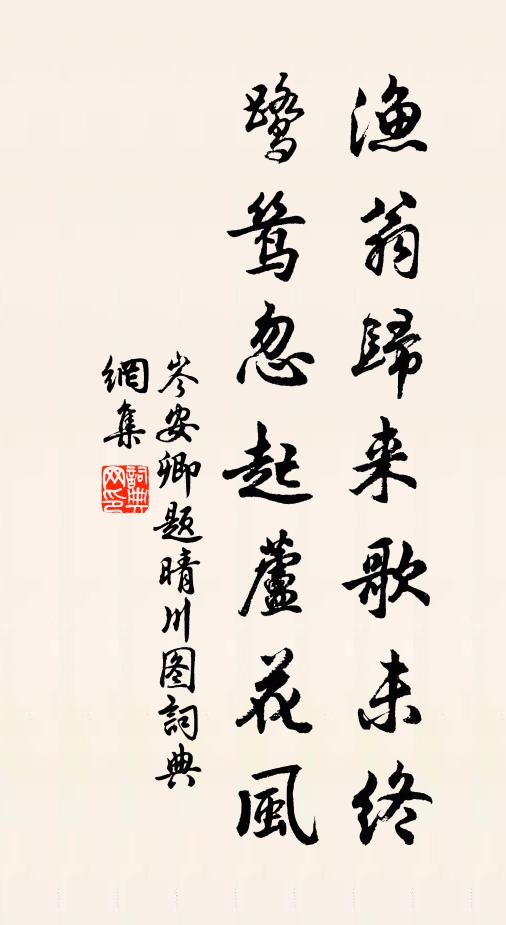 漁翁歸来歌未終
鷺鴛忽起蘆花風
岑安卿題晴川图詞典
網集
詞典网印